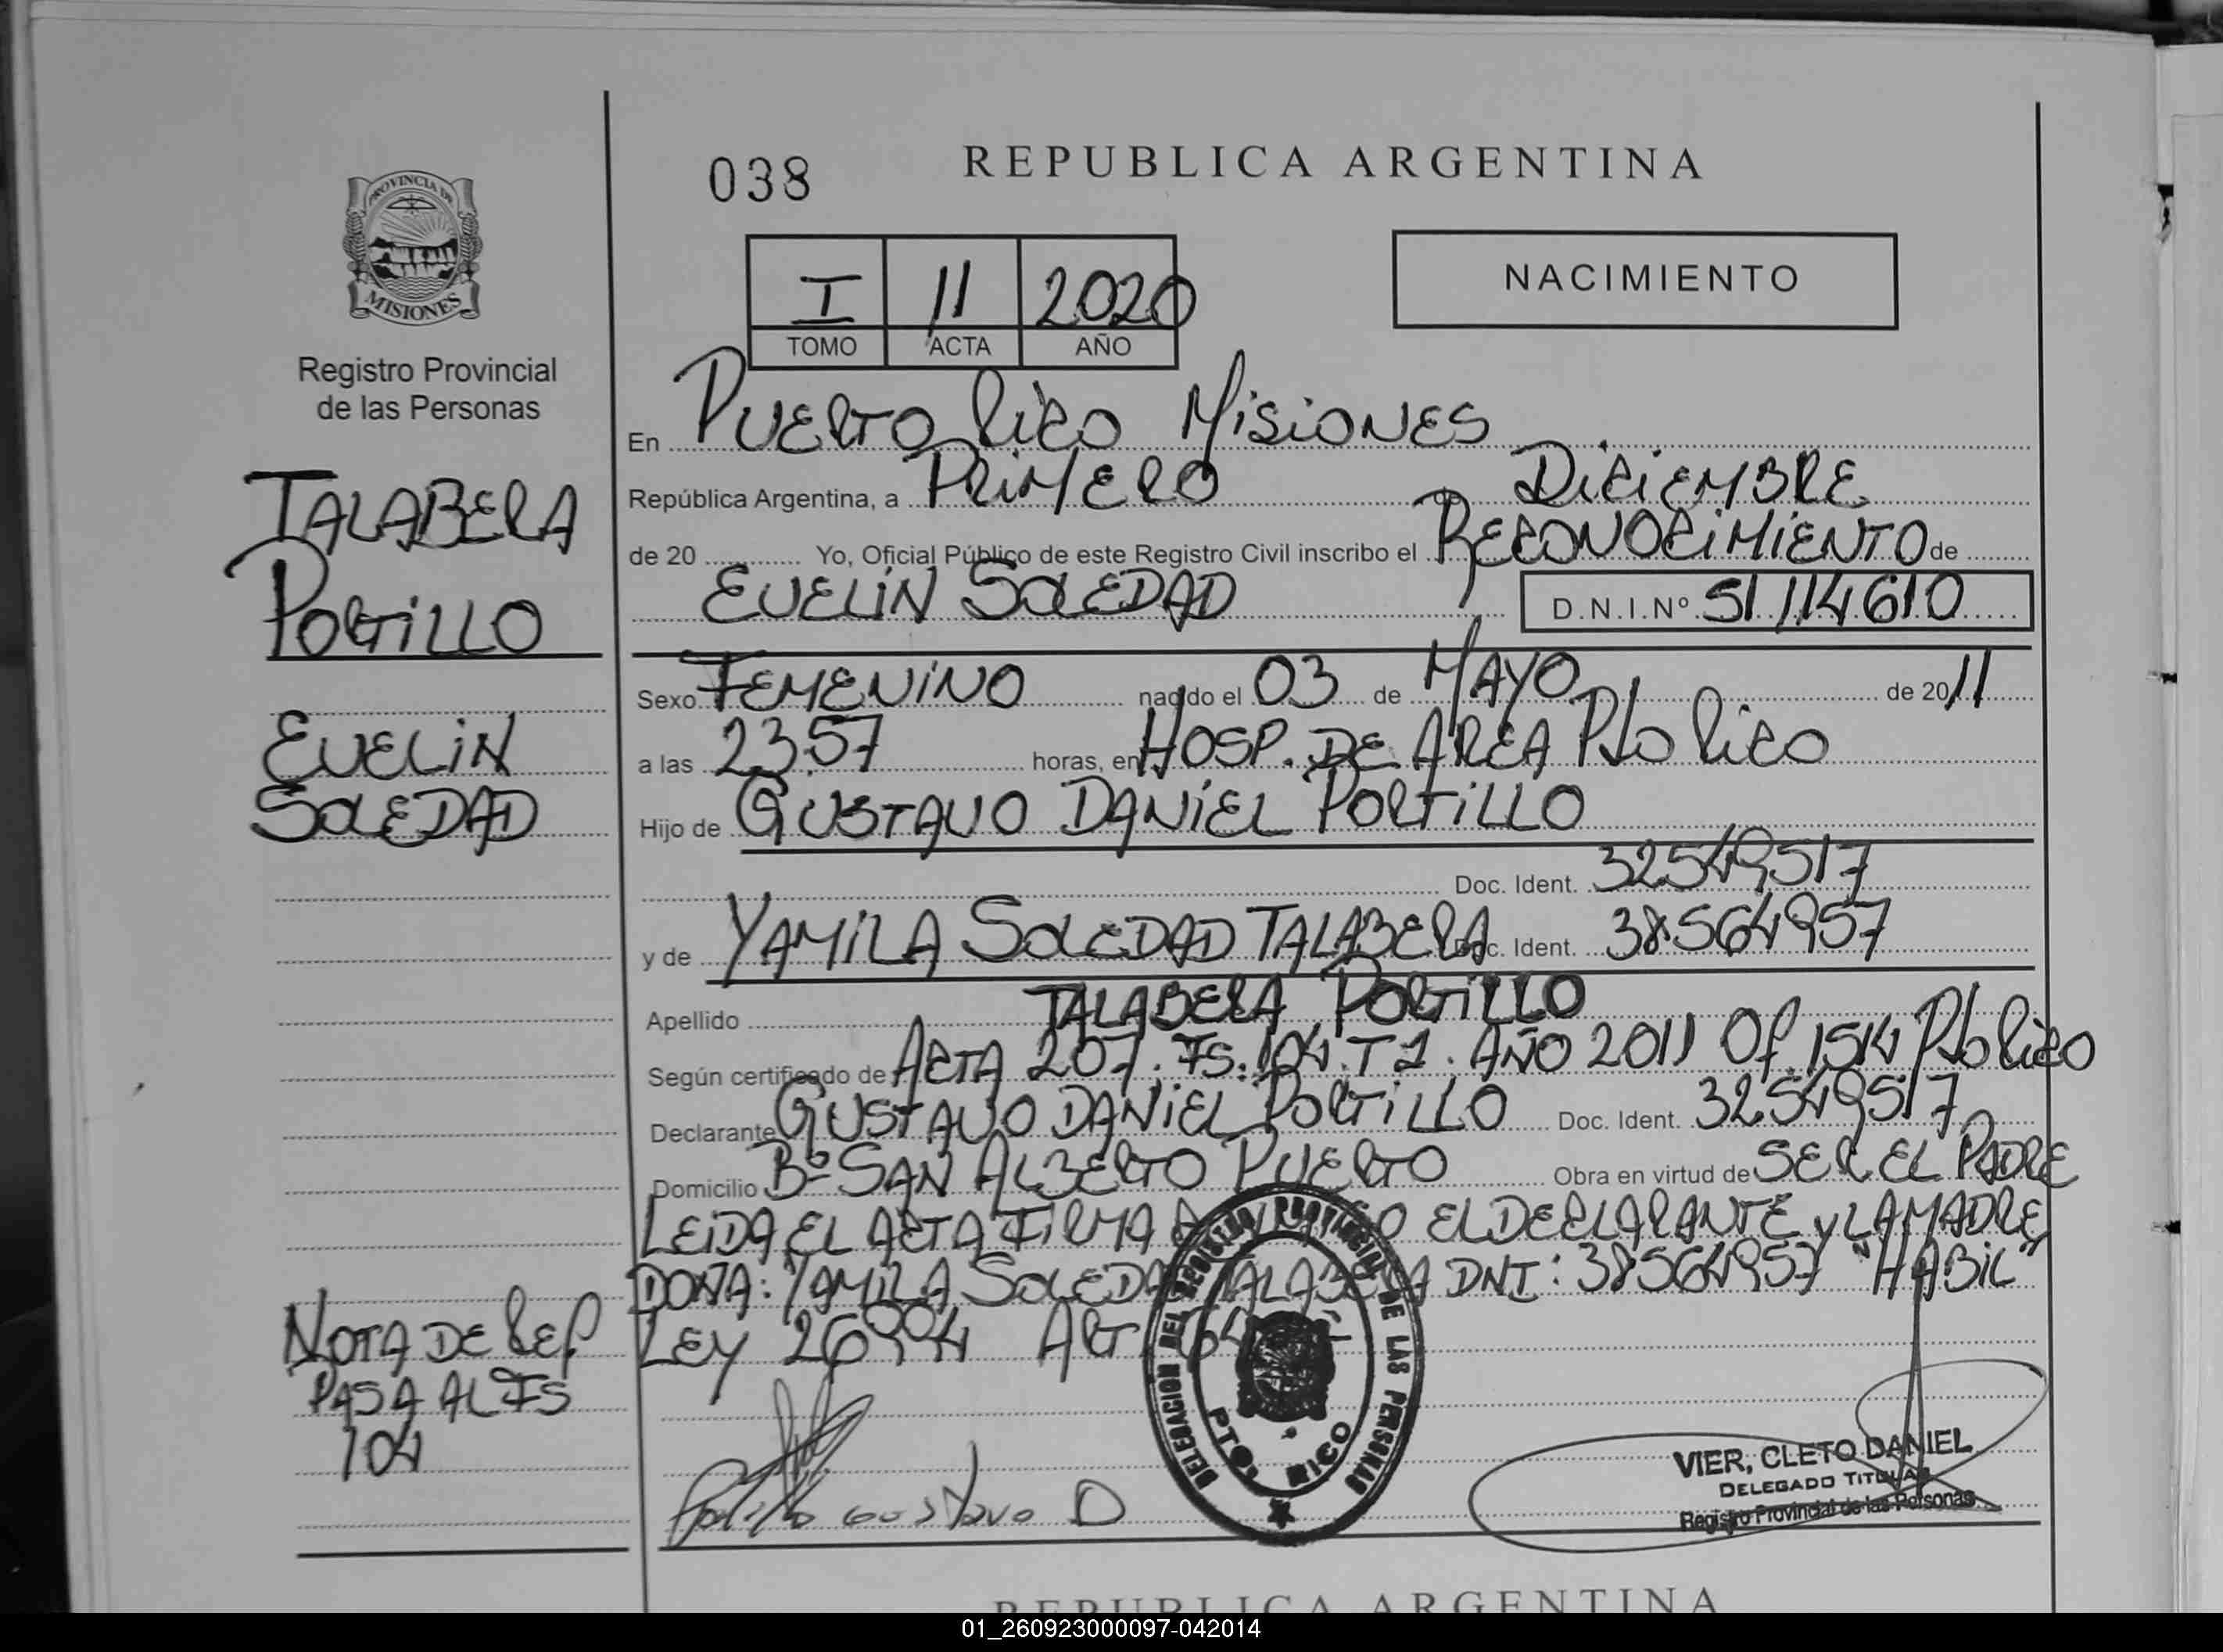 038
REPUBLICA ARGENTINA
PROVINCIA DE
MISIONES
Registro Provincial
de las Personas
I 11 2020
TOMO ACTA AÑO
NACIMIENTO
En PUERTO RICO MISIONES
República Argentina, a PRIMERO DICIEMBRE
de 20 Yo, Oficial Público de este Registro Civil inscribo el RECONOCIMIENTO de
EVELIN SOLEDAD D.N.I.Nº 51114610
TALABERA
PORTILLO
EVELIN
SOLEDAD
Sexo FEMENINO nacido el 03 de MAYO de 2011
a las 23.57 horas, en HOSP. DE AREA Pto Rico
Hijo de GUSTAVO DANIEL PORTILLO
Doc. Ident. 32549517
y de YAMILA SOLEDAD TALABERA Doc. Ident. 38564957
Apellido TALABERA PORTILLO
Según certificado de ACTA 207. FS. 104. T 1. AÑO 2011 Of 1514 Pto Rico
Declarante GUSTAVO DANIEL PORTILLO Doc. Ident. 32549517
Domicilio Bº SAN ALBERTO PUERTO Obra en virtud de SER EL PADRE
LEIDA EL ACTA FIRMA EL DECLARANTE y LA MADRE
DOÑA: YAMILA SOLEDAD TALABERA DNI: 38564957 "HABIL"
LEY 26994 ART 64
NOTA DE REF
PASA AL FS
104
DELEGACION DEL REGISTRO PROVINCIAL DE LAS PERSONAS
PTO. RICO
Portillo Gustavo D
VIER, CLETO DANIEL
DELEGADO TITULAR
Registro Provincial de las Personas
REPUBLICA ARGENTINA
01_260923000097-042014